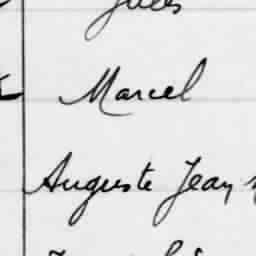 Jules
Marcel
Auguste Jean